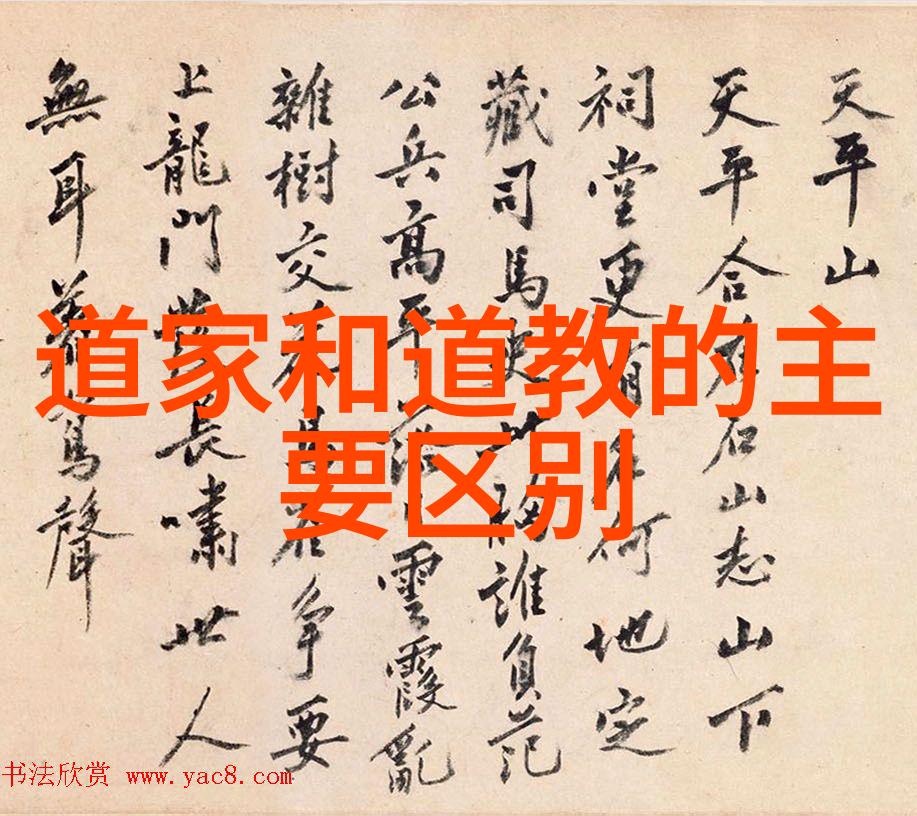 天平山
天平合石山志山下
祠堂更有何地定
藏司馬史此誰負范
公兵高平雲霞亂
雜樹交花雀爭要
上龍門長嘯世人
無耳聲
道家和道教的主
要区别
书法欣赏 www.yac8.com